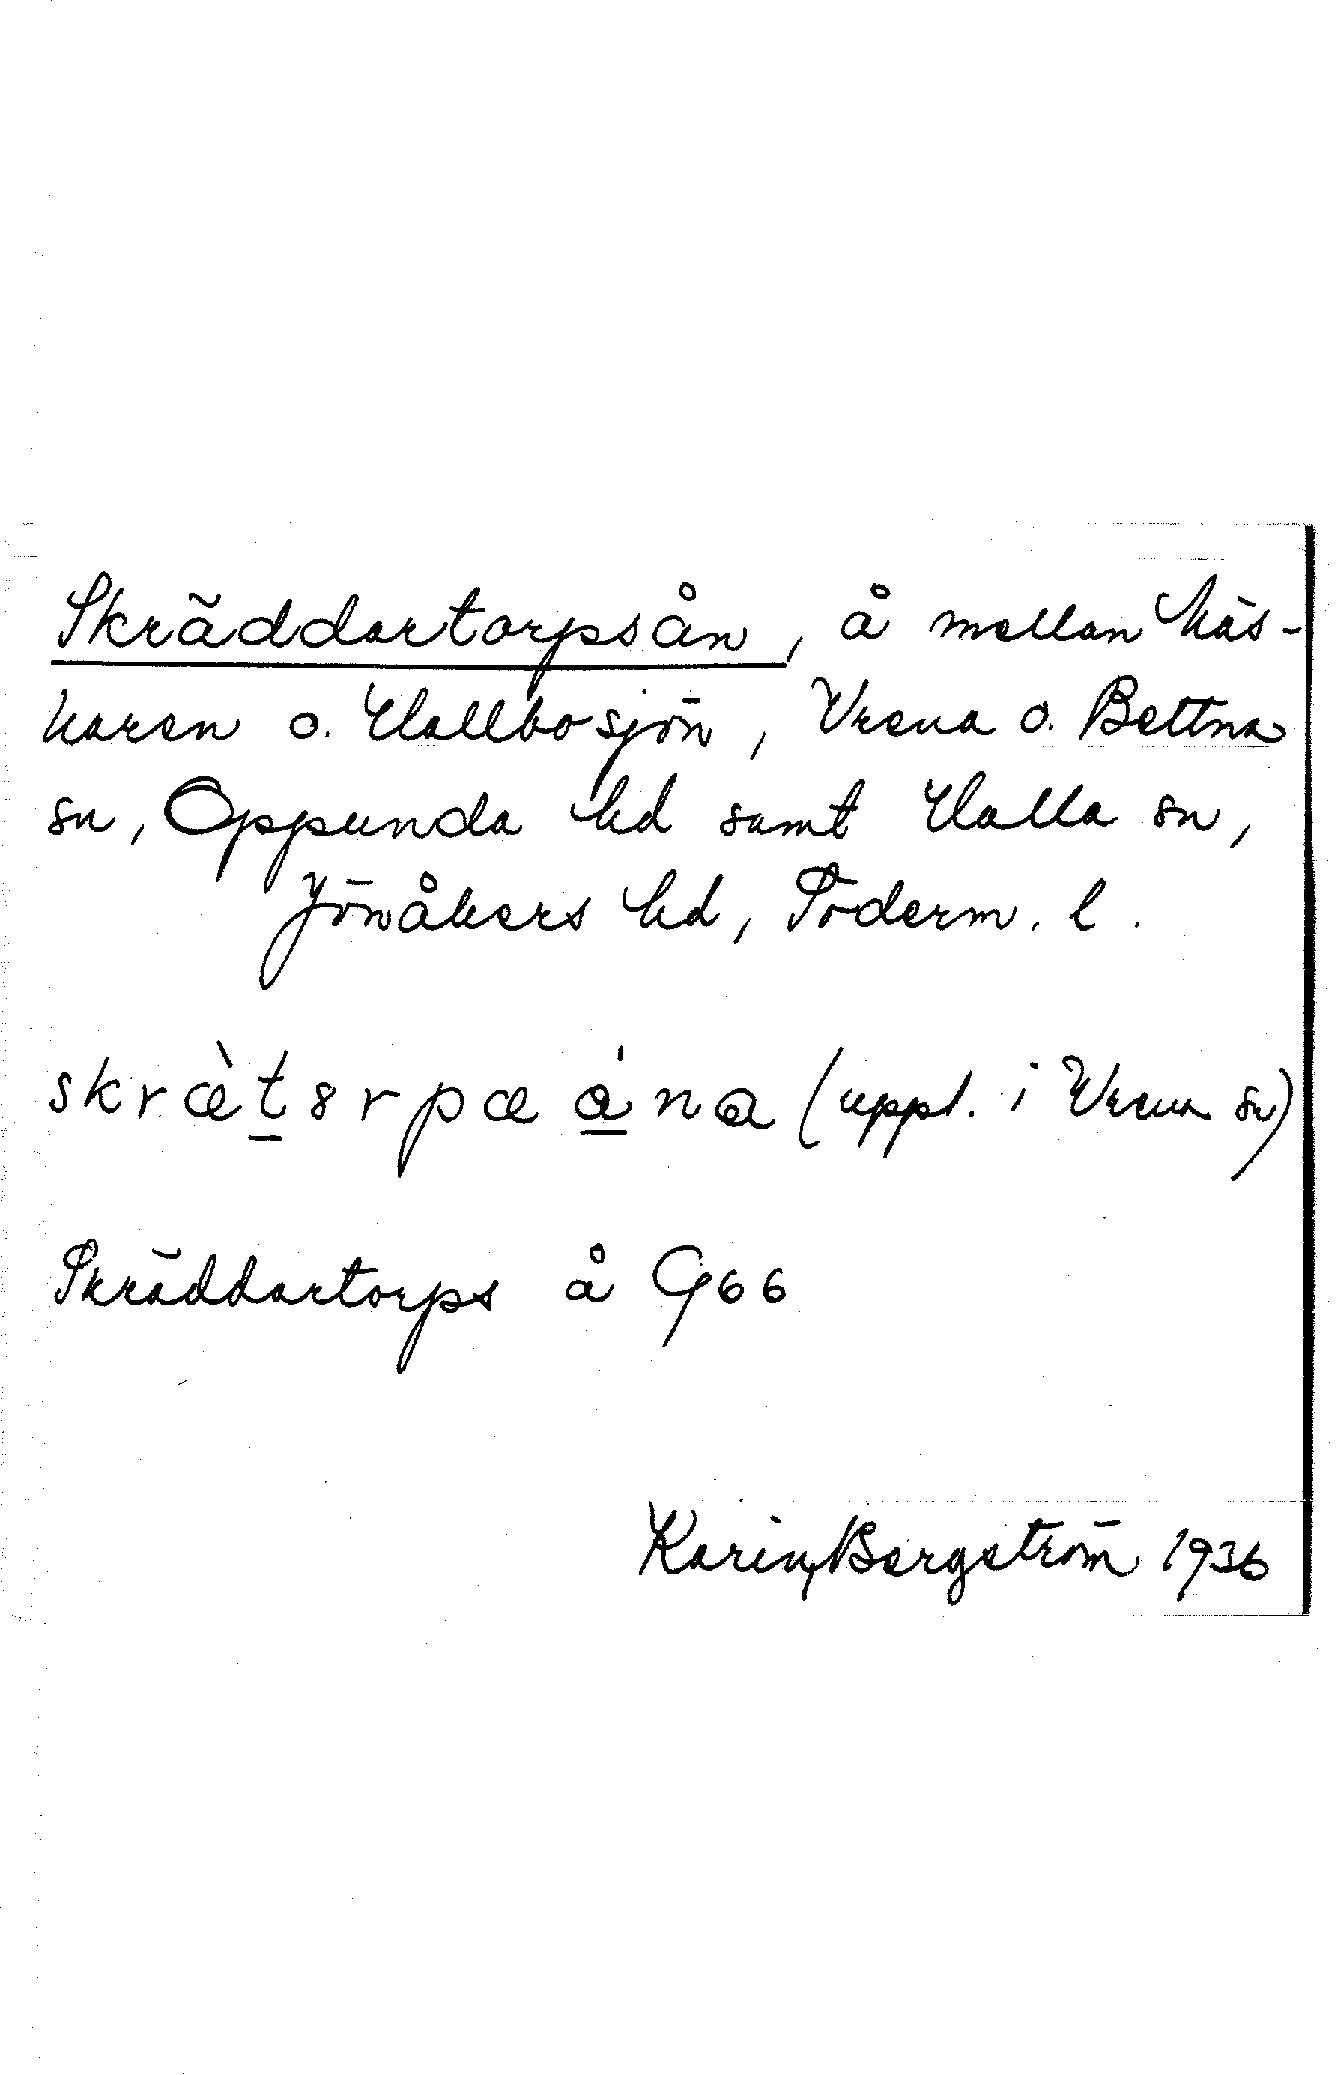 Skräddartorpsån, å mellan Häs-
karen o. Hallbosjön, Vrena o. Bettna
sn, Oppunda hd samt Halla sn,
Jönåkers hd, Söderm. l.
skræ̀tərpæ åna (uppt. i Vrena sn)
Skräddartorps å G66
Karin Bergström 1936